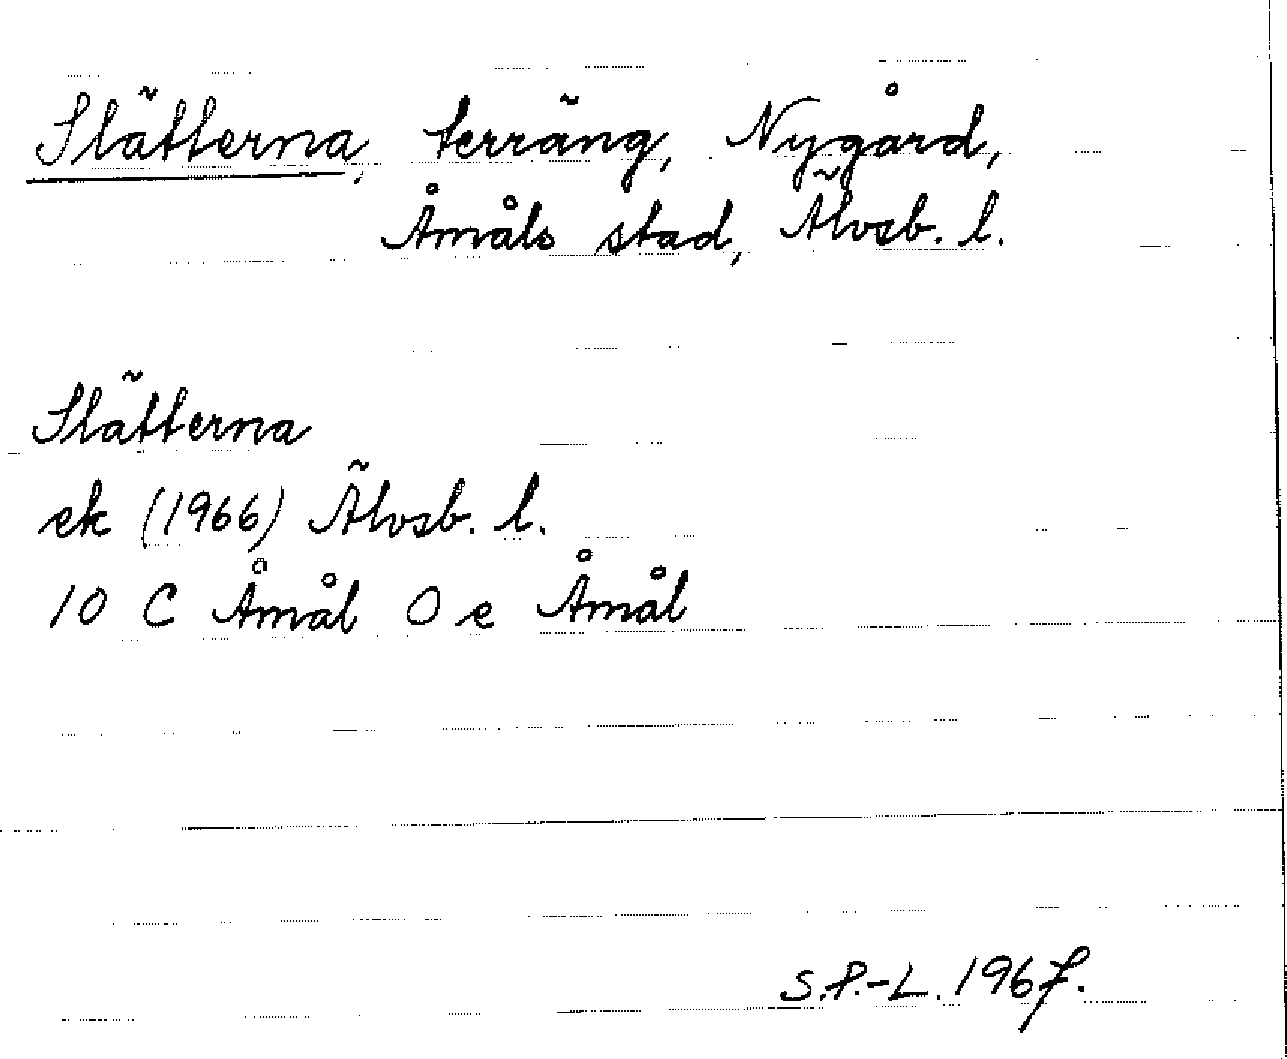 Slätterna, terräng, Nygård,
Åmåls stad, Älvsb. l.
Slätterna
ek (1966) Älvsb. l.
10 C Åmål 0 e Åmål
S.P.-L. 1967.